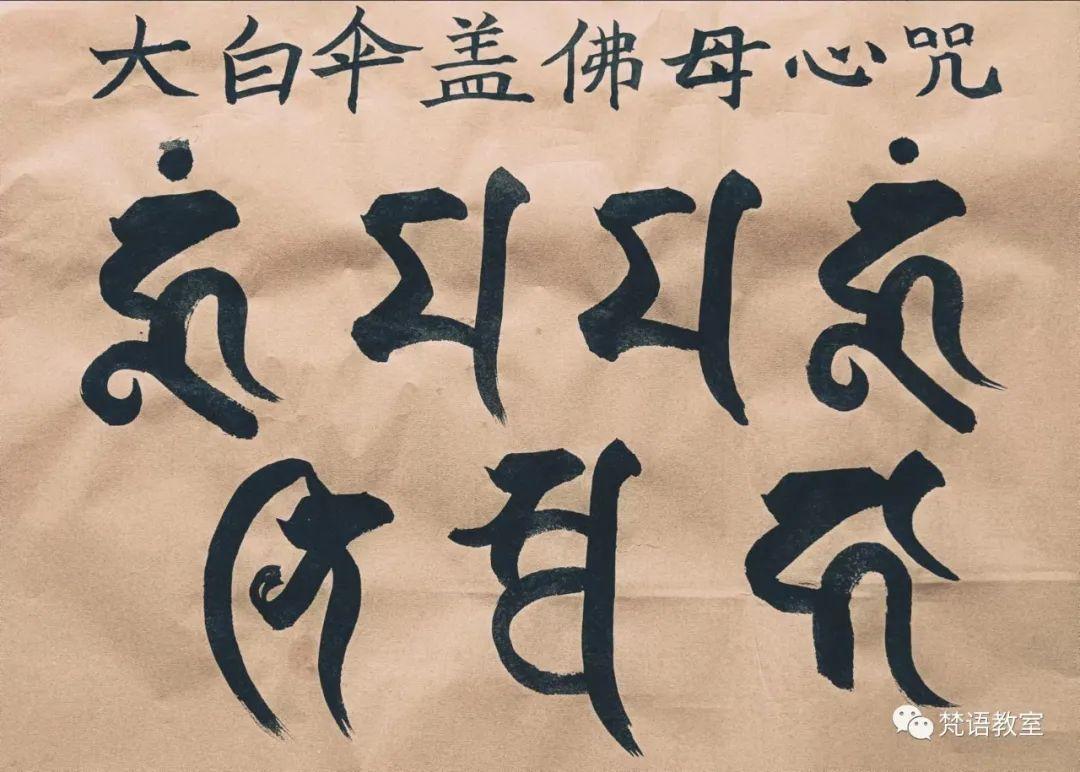 大白伞盖佛母心咒
𑖮𑖳𑖽 𑖦 𑖦 𑖮𑖳𑖽
𑖡𑖰 𑖭𑖿𑖪 𑖮𑖯
梵语教室